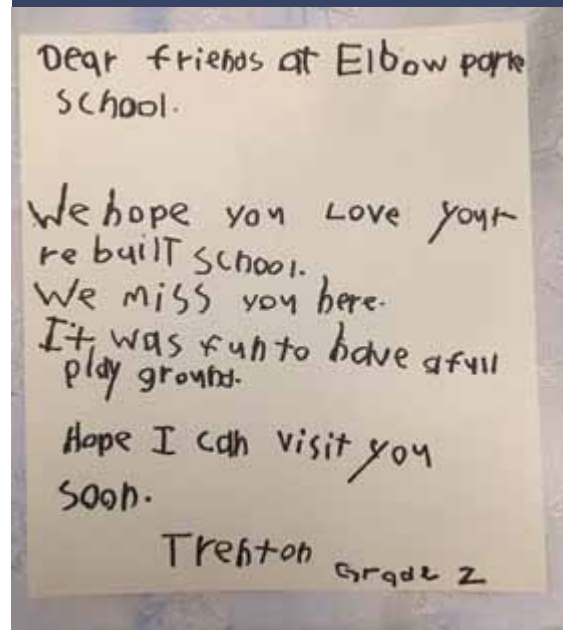 Dear friends at Elbow park
school.
We hope you Love your
re built school.
We miss you here.
It was fun to have a full
play ground.
Hope I can visit you
soon.
Trenton Grade 2